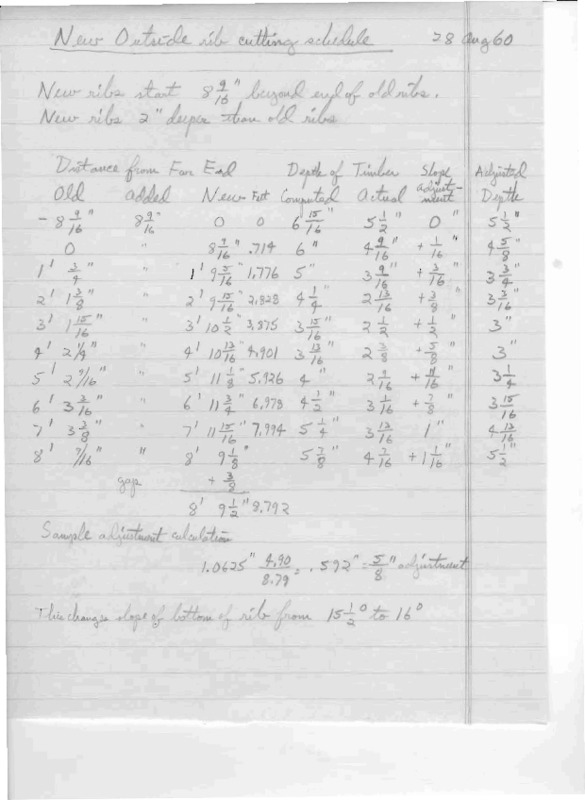 New Outside rib cutting schedule 28 Aug 60
New ribs start 8 9/16" beyond end of old ribs.
New ribs 2" deeper than old ribs
Distance from Far End Depth of Timber Slope Adjusted
Old added New Feet Computed Actual Adjust-ment Depth
- 8 9/16" 8 9/16" 0 0 6 15/16" 5 1/2" 0" 5 1/2"
0 " 8 9/16" .714 6" 4 9/16" + 1/16" 4 5/8"
1' 3/4" " 1' 9 5/16" 1.776 5" 3 9/16" + 3/16" 3 3/4"
2' 1 3/8" " 2' 9 15/16" 2.828 4 1/4" 2 13/16" + 3/8" 3 3/16"
3' 1 15/16" " 3' 10 1/2" 3.875 3 15/16" 2 1/2 + 1/2" 3"
4' 2 1/4" " 4' 10 13/16 4.901 3 13/16" 2 3/8 + 5/8" 3"
5' 2 9/16" " 5' 11 1/8 5.926 4" 2 9/16 + 11/16" 3 1/4
6' 3 3/16 " 6' 11 3/4" 6.978 4 1/2" 3 1/16 + 7/8" 3 15/16
7' 3 3/8" " 7' 11 15/16" 7.994 5 1/4" 3 13/16 1" 4 13/16
8' 7/16" " 8' 9 1/8" 5 7/8" 4 7/16 + 1 1/16" 5 1/2"
gap + 3/8
8' 9 1/2" 8.792
Sample adjustment calculation
1.0625" 4.90/8.79 = .592" = 5/8" adjustment
This changes slope of bottom of rib from 15 1/2° to 16°